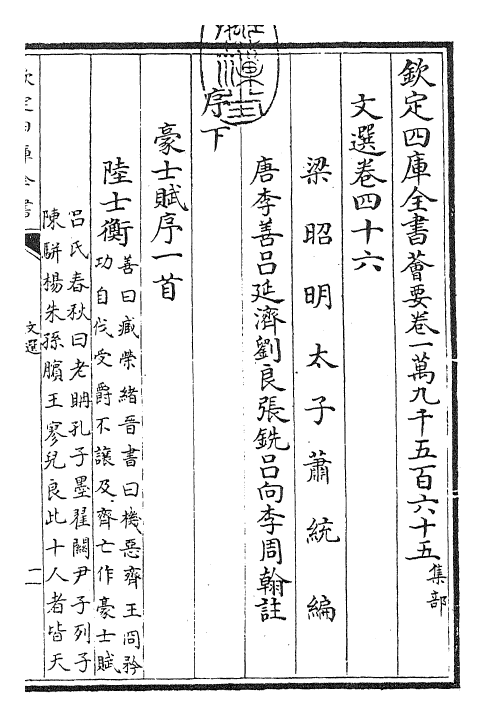 欽定四庫全書薈要卷一萬九千五百六十五 集部
文選卷四十六
梁昭明太子蕭統編
唐李善呂延濟劉良張銑呂向李周翰註
序下
豪士賦序一首
陸士衡
善曰臧榮緒晉書曰機惡齊王冏矜
功自伐受爵不讓及齊亡作豪士賦
呂氏春秋曰老聃孔子墨翟關尹子列子
陳駢楊朱孫臏王寥兒良此十人者皆天
文選